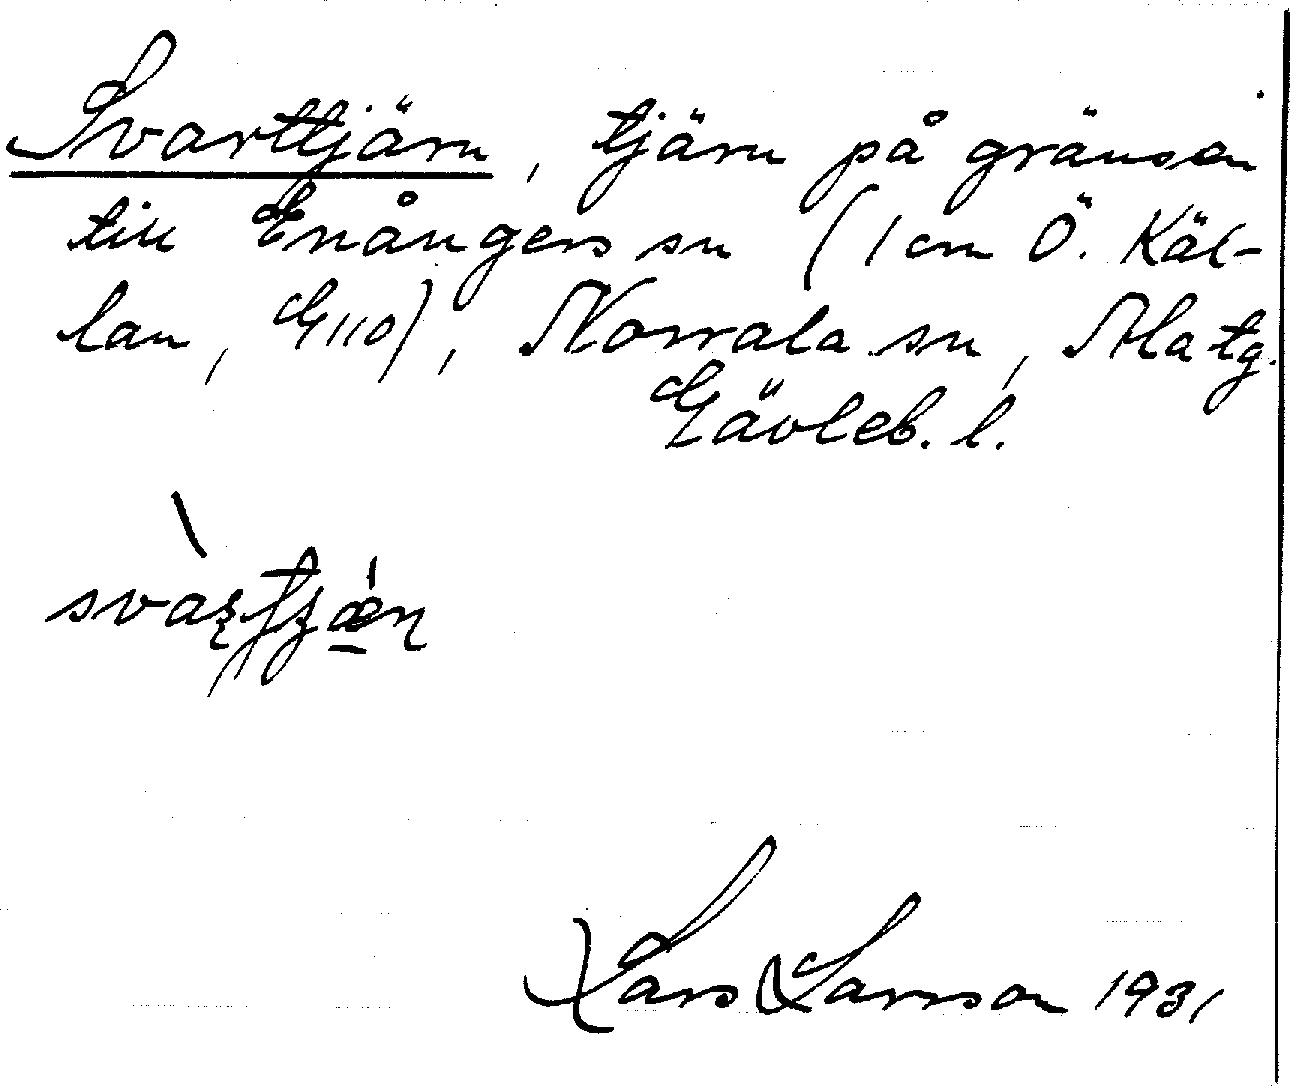 Svarttjärn, tjärn på gränsen
till Enångers sn (1 cm Ö. Käl-
lan, G110), Norrala sn, Ala tg.
Gävleb. l.
Lars Larsson 1931